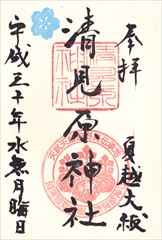 奉拝
夏越大祓
清見原神社
平成三十年水無月晦日